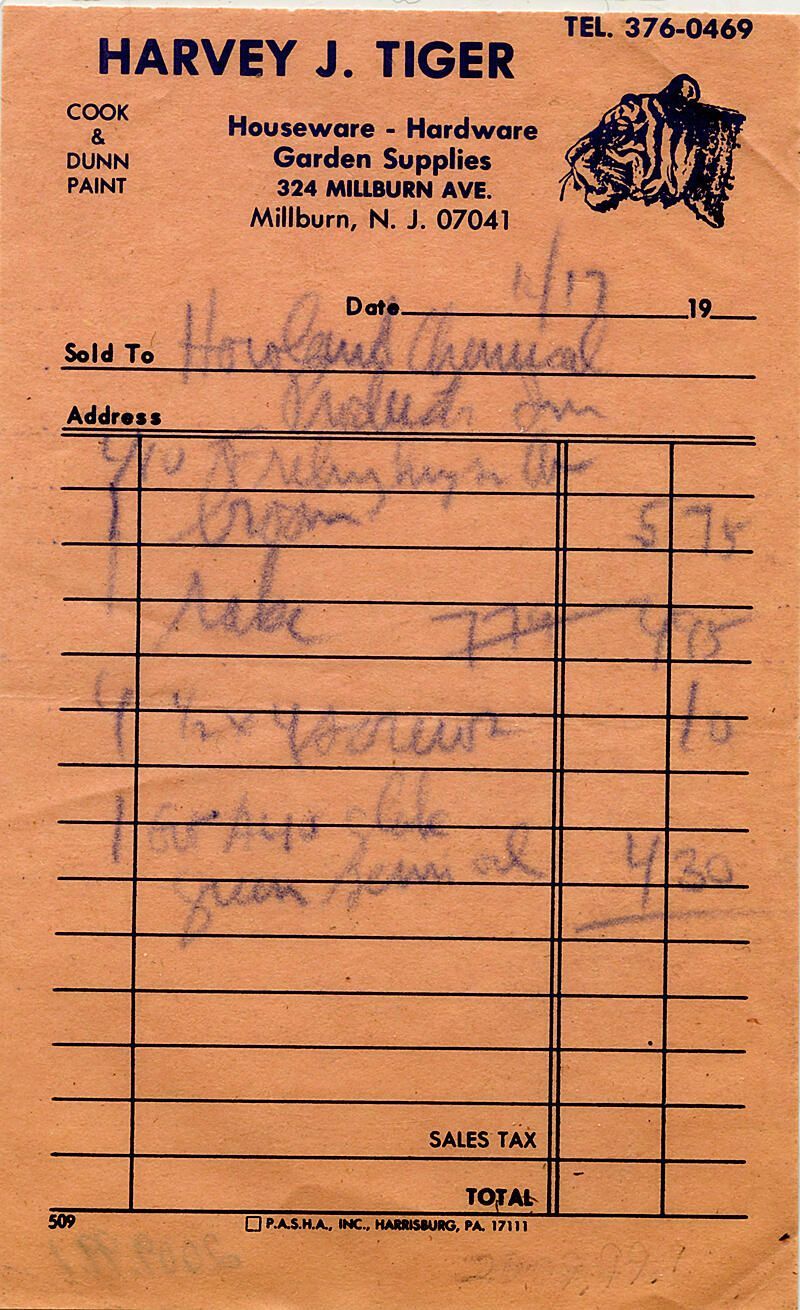 TEL. 376-0469
HARVEY J. TIGER
COOK
&
DUNN
PAINT
Houseware - Hardware
Garden Supplies
324 MILLBURN AVE.
Millburn, N. J. 07041
Date 12/17 19
Sold To Howland Chemical
Products Inc
Address
410
1 broom 5 75
1 rake 4 95
4 1/2 x 4 screws 10
1 green semi 4 30
SALES TAX
TOTAL
509
P.A.S.H.A., INC., HARRISBURG, PA. 17111